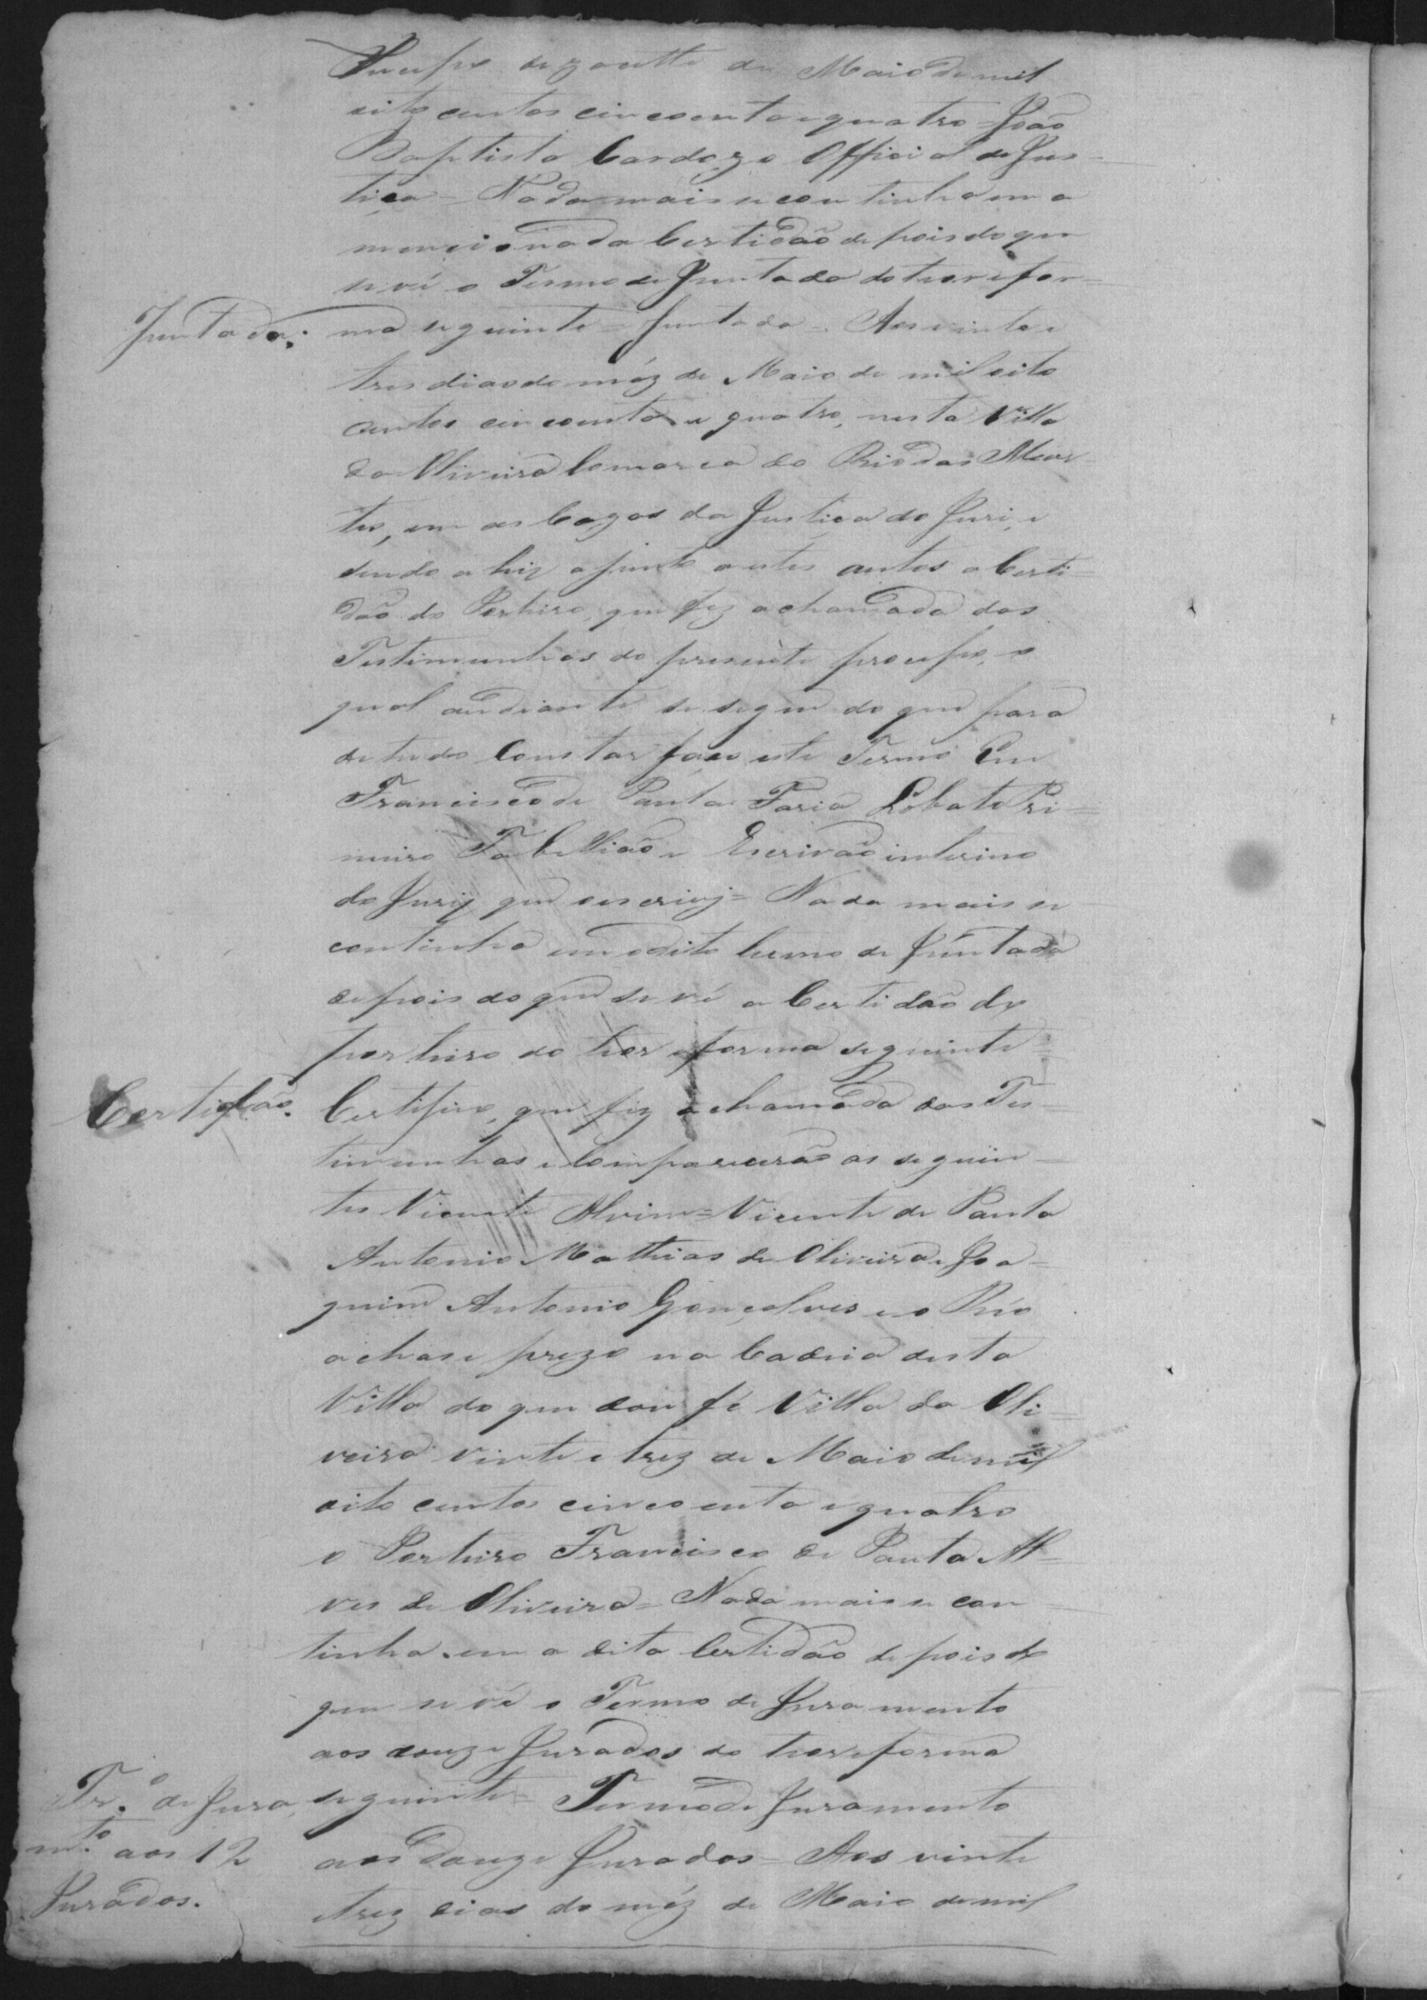 dezoitto de Maio de mil
oito centos cincoenta e quatro = João
Baptista Cardozo Official de Jus-
tiça = Nada mais se continha em a
mencionada Certidão depois do que
se vê o Termo de Juntada do theor e for-
Juntada. ma seguinte = Juntada = Aos vinte e
tres dias do méz de Maio de mil oito
centos cincoenta e quatro, nesta Villa
da Oliveira Comarca do Rio das Mor-
tes, em as Cazas da Justiça do Juri, e
sendo ahi ajunto a estes autos a Certi-
dão do Porteiro, que fez a chamada das
Testimunhas do presente processo, o
qual ao diante se segue do que para
de tudo constar faço este Termo Eu
Francisco de Paula Faria Lobato Pri-
meiro Tabellião e Escrivão interino
do Jury que escrivy = Nada mais se
continha em o dito termo de Juntada
depois do que se vê a Certidão do
porteiro do theor e forma seguinte =
Certidão. Certifico, que fiz a chamada das Tes-
timunhas e Comparecerão as seguin-
tes Vicente Alvim = Vicente de Paula
Antonio Mathias de Oliveira, Joa-
quim Antonio Gonçalves e o Réo
achase prezo na Cadeia desta
Villa do que dou fé Villa da Oli-
veira vinte e trez de Maio de mil
oito centos cincoenta e quatro
o Porteiro Francisco de Paula Al-
ves de Oliveira = Nada mais se con-
tinha em a dita Certidão depois do
que se vê o Termo de Juramento
aos douze Jurados do theor e forma
Tr.º de Jura- seguinte = Termo de Juramento
m.to aos 12 aos douze Jurados = Aos vinte
Jurados. e trez dias do méz de Maio de mil